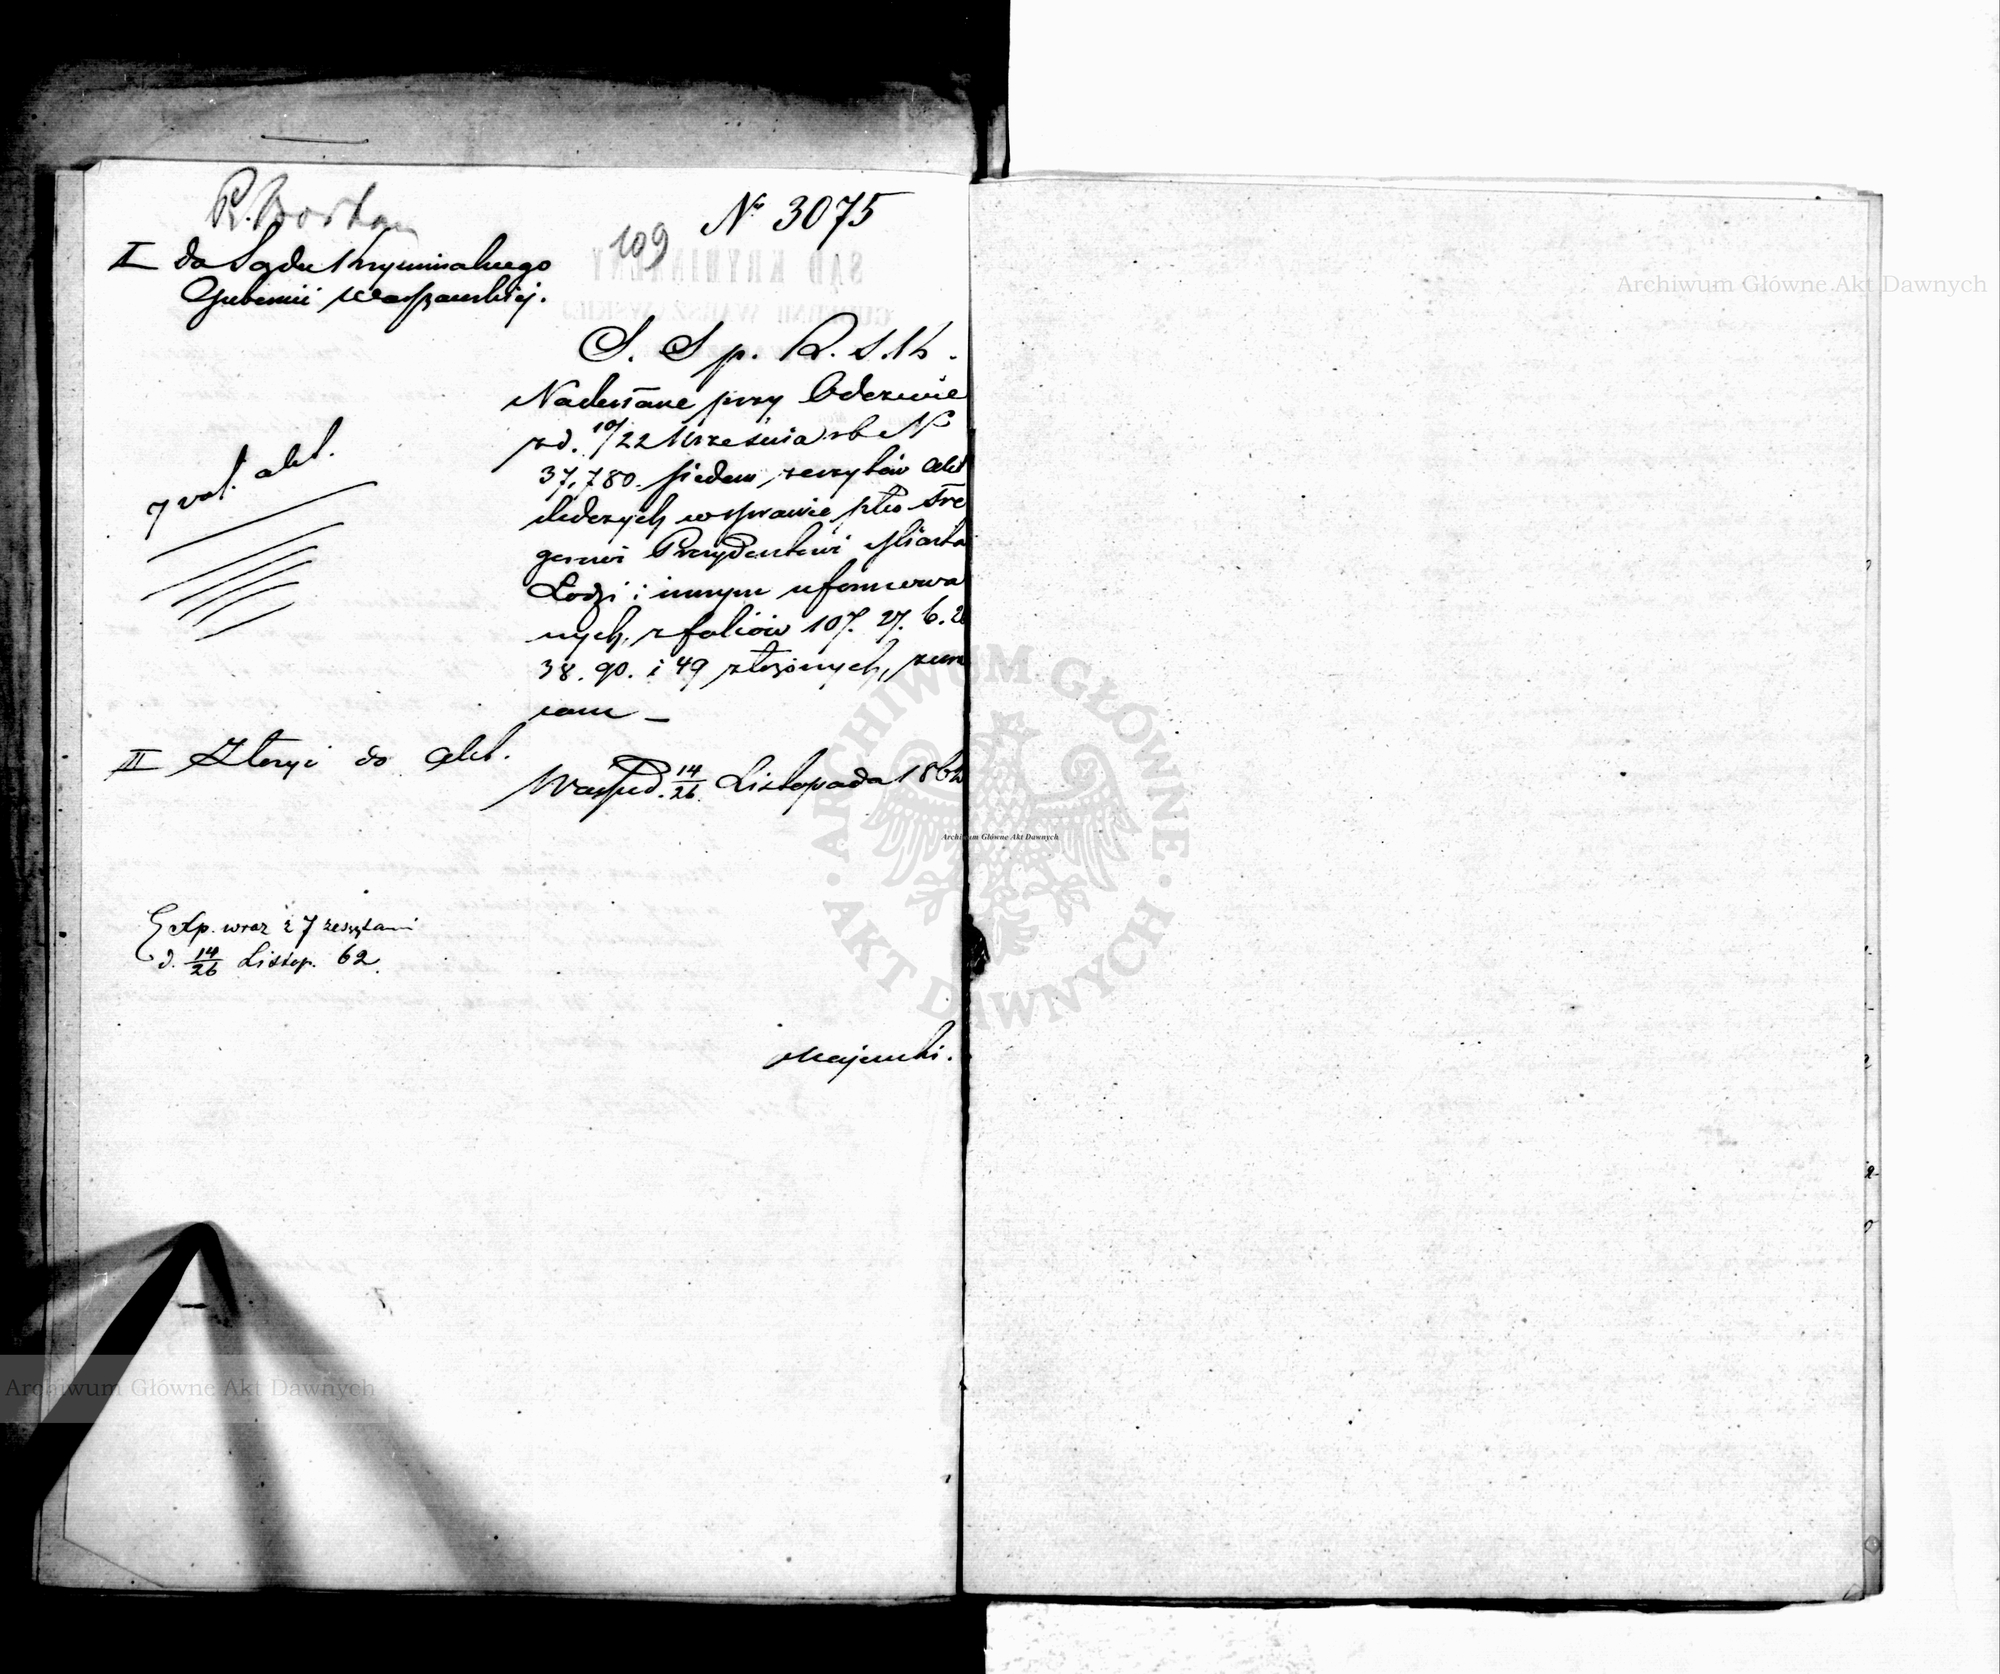 109
№ 3075
I do Sądu Kryminalnego
Gubernii Warszawskiej.
S. S p. R. S. K.
Nadesłane przy Odezwie
z d. 10/22 Września rb N
37,780. siedem zeszytów Akt
śledczych w sprawie plko Tre
gerowi Prezydentowi Miasta
Łodzi i innym uformowa
nych, z foliów 107. 27. 6. 2
38. 90. i 49 złożonych, zwra
cam –
7 vol. akt.
II Złożyć do Akt.
Warsz. d. 14/26 Listopada 1862
Exp. wraz z 7 zeszytami
d. 14/26 Listop. 62.
Majewski.
SĄD KRYMINALNY
GUBERNII WARSZAWSKIEJ
Archiwum Główne Akt Dawnych
Archiwum Główne Akt Dawnych
Archiwum Główne Akt Dawnych
ARCHIWUM GŁÓWNE · AKT DAWNYCH ·